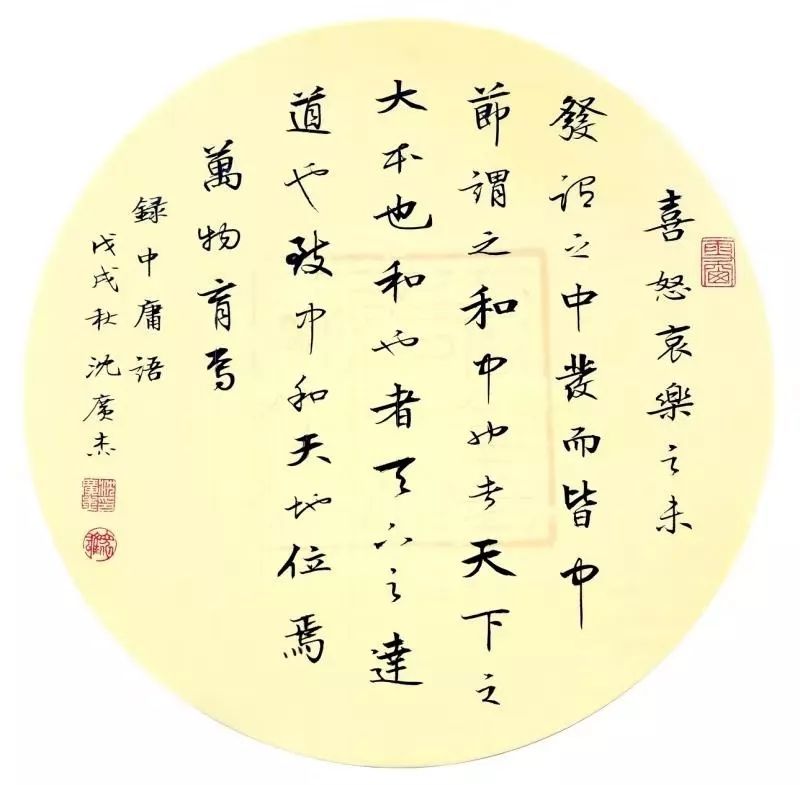 喜怒哀樂之未
發謂之中發而皆中
節謂之和中也者天下之
大本也和也者天下之達
道也致中和天地位焉
萬物育焉
錄中庸語
戊戌秋沈廣杰